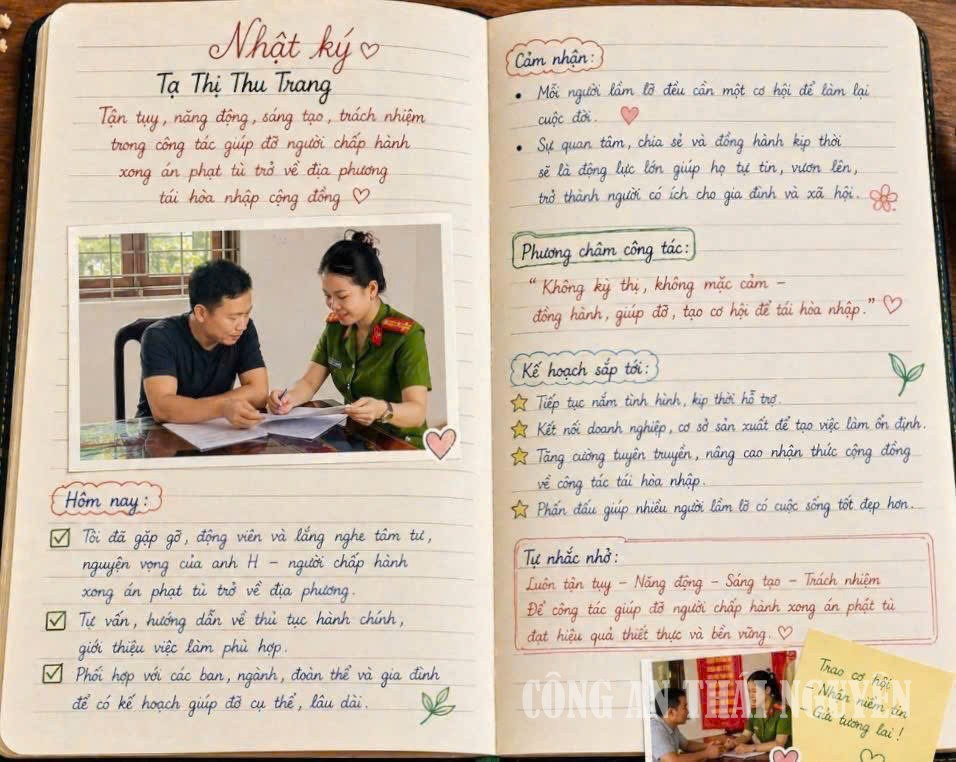 Nhật ký
Tạ Thị Thu Trang
Tận tụy, năng động, sáng tạo, trách nhiệm
trong công tác giúp đỡ người chấp hành
xong án phạt tù trở về địa phương
tái hòa nhập cộng đồng
Hôm nay:
Tôi đã gặp gỡ, động viên và lắng nghe tâm tư,
nguyện vọng của anh H – người chấp hành
xong án phạt tù trở về địa phương.
Tự vấn, hướng dẫn về thủ tục hành chính,
giới thiệu việc làm phù hợp.
Phối hợp với các ban, ngành, đoàn thể và gia đình
để có kế hoạch giúp đỡ cụ thể, lâu dài.
Cảm nhận:
• Mỗi người lầm lỡ đều cần một cơ hội để làm lại
cuộc đời.
• Sự quan tâm, chia sẻ và đồng hành kịp thời
sẽ là động lực lớn giúp họ tự tin, vươn lên,
trở thành người có ích cho gia đình và xã hội.
Phương châm công tác:
“Không kỳ thị, không mặc cảm –
đồng hành, giúp đỡ, tạo cơ hội để tái hòa nhập.”
Kế hoạch sắp tới:
Tiếp tục nắm tình hình, kịp thời hỗ trợ.
Kết nối doanh nghiệp, cơ sở sản xuất để tạo việc làm ổn định.
Tăng cường tuyên truyền, nâng cao nhận thức cộng đồng
về công tác tái hòa nhập.
Phấn đấu giúp nhiều người lầm lỡ có cuộc sống tốt đẹp hơn.
Tự nhắc nhở:
Luôn tận tụy – Năng động – Sáng tạo – Trách nhiệm
Để công tác giúp đỡ người chấp hành xong án phạt tù
đạt hiệu quả thiết thực và bền vững.
Trao cơ hội
Nhận niềm tin
Gửi tương lai!
CÔNG AN THÁI NGUYÊN